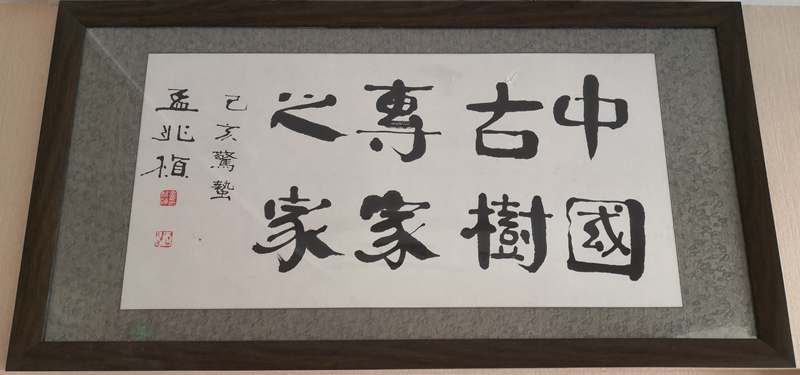 中國
古樹
專家
之家
己亥驚蟄
孟兆禎